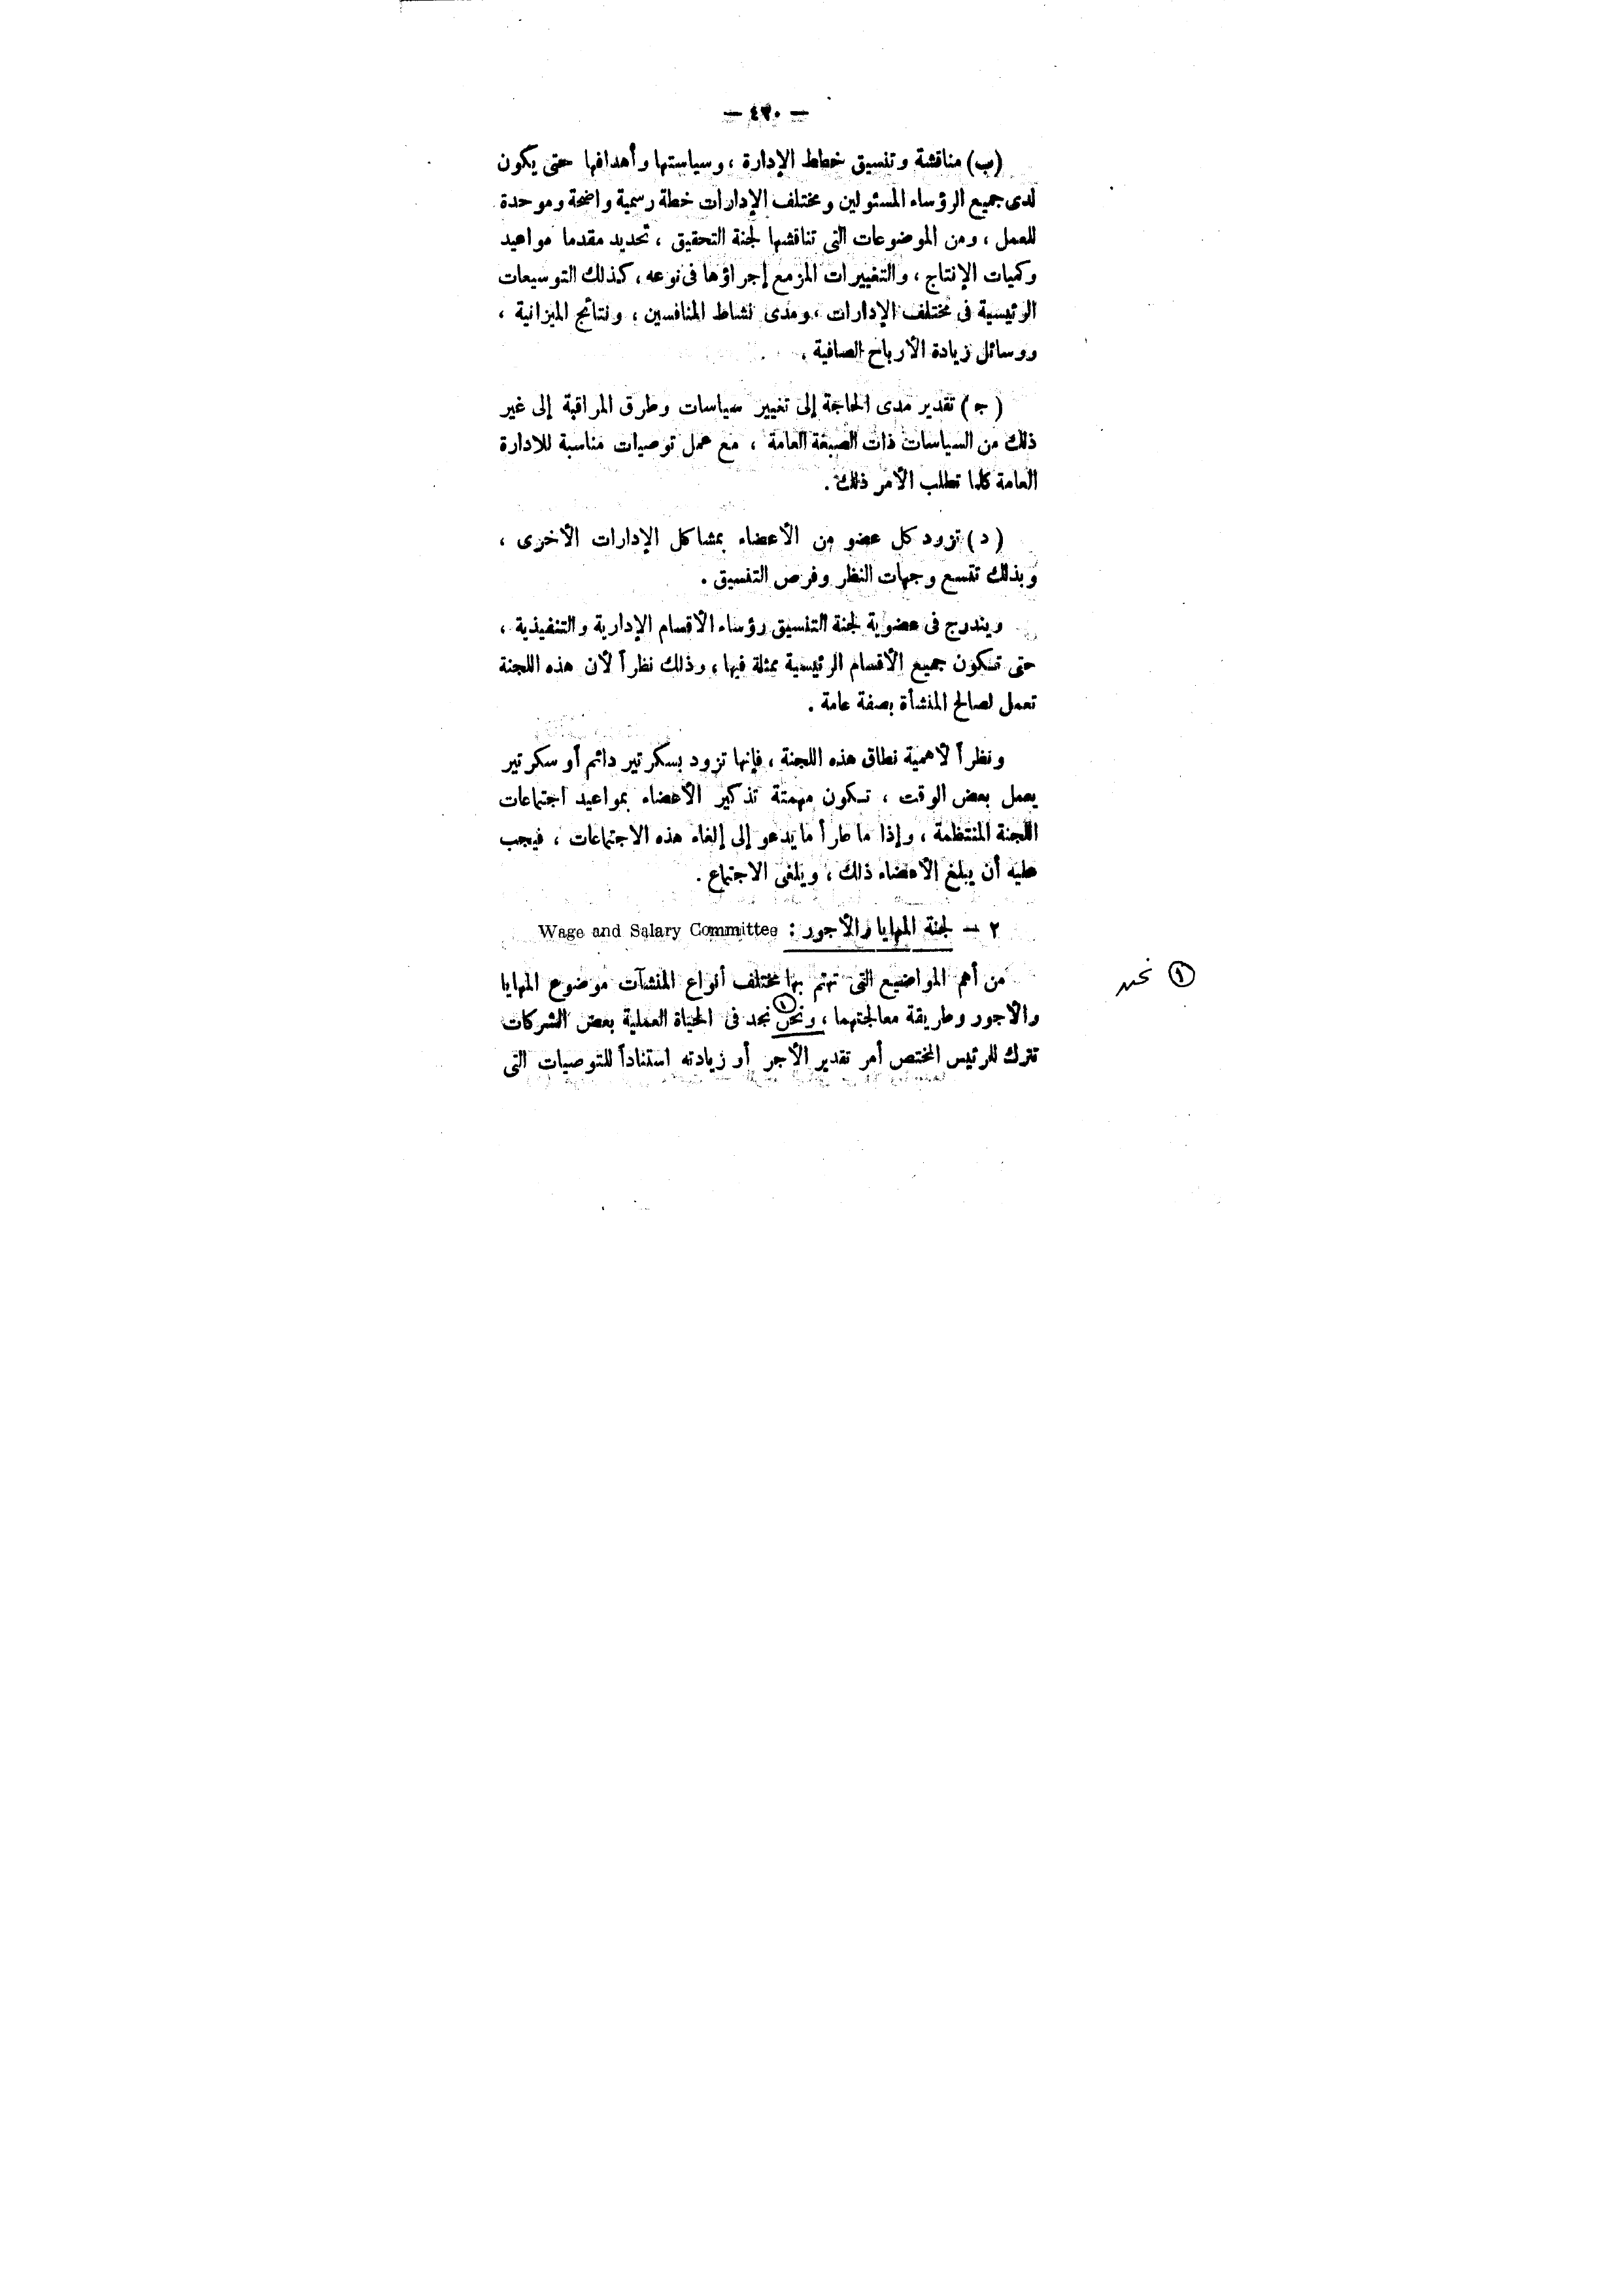 — ٤٣٠ —
(ب) مناقشة وتنسيق خطط الإدارة ، وسياستها وأهدافها حتى يكون
لدى جميع الرؤساء المسئولين ومختلف الإدارات خطة رسمية واضحة وموحدة
للعمل ، ومن الموضوعات التى تناقشها لجنة التحقيق ، تحديد مقدما مواعيد
وكميات الإنتاج ، والتغييرات المزمع إجراؤها فى نوعه ، كذلك التوسيعات
الرئيسية فى مختلف الإدارات ، ومدى نشاط المنافسين ، ونتائج الميزانية ،
ووسائل زيادة الأرباح الصافية .
(ج) تقدير مدى الحاجة إلى تغيير سياسات وطرق المراقبة إلى غير
ذلك من السياسات ذات الصبغة العامة ، مع عمل توصيات مناسبة للادارة
العامة كلما تطلب الأمر ذلك .
(د) تزود كل عضو من الأعضاء بمشاكل الإدارات الأخرى ،
وبذلك تتسع وجهات النظر وفرص التنسيق .
ويندرج فى عضوية لجنة التنسيق رؤساء الأقسام الإدارية والتنفيذية ،
حتى تكون جميع الأقسام الرئيسية ممثلة فيها ، وذلك نظراً لأن هذه اللجنة
تعمل لصالح المنشأة بصفة عامة .
ونظراً لأهمية نطاق هذه اللجنة ، فإنها تزود بسكرتير دائم أو سكرتير
يعمل بعض الوقت ، تكون مهمتة تذكير الأعضاء بمواعيد اجتماعات
اللجنة المنتظمة ، وإذا ما طرأ ما يدعو إلى إلغاء هذه الاجتماعات ، فيجب
عليه أن يبلغ الأعضاء ذلك ، ويلغى الاجتماع .
٢ — لجنة المهايا والأجور : Wage and Salary Committee
من أهم المواضيع التى تهتم بها مختلف أنواع المنشآت موضوع المهايا
والأجور وطريقة معالجتهما ، ونحن ① نجد فى الحياة العملية بعض الشركات
تترك للرئيس المختص أمر تقدير الأجر أو زيادته استناداً للتوصيات التى
①